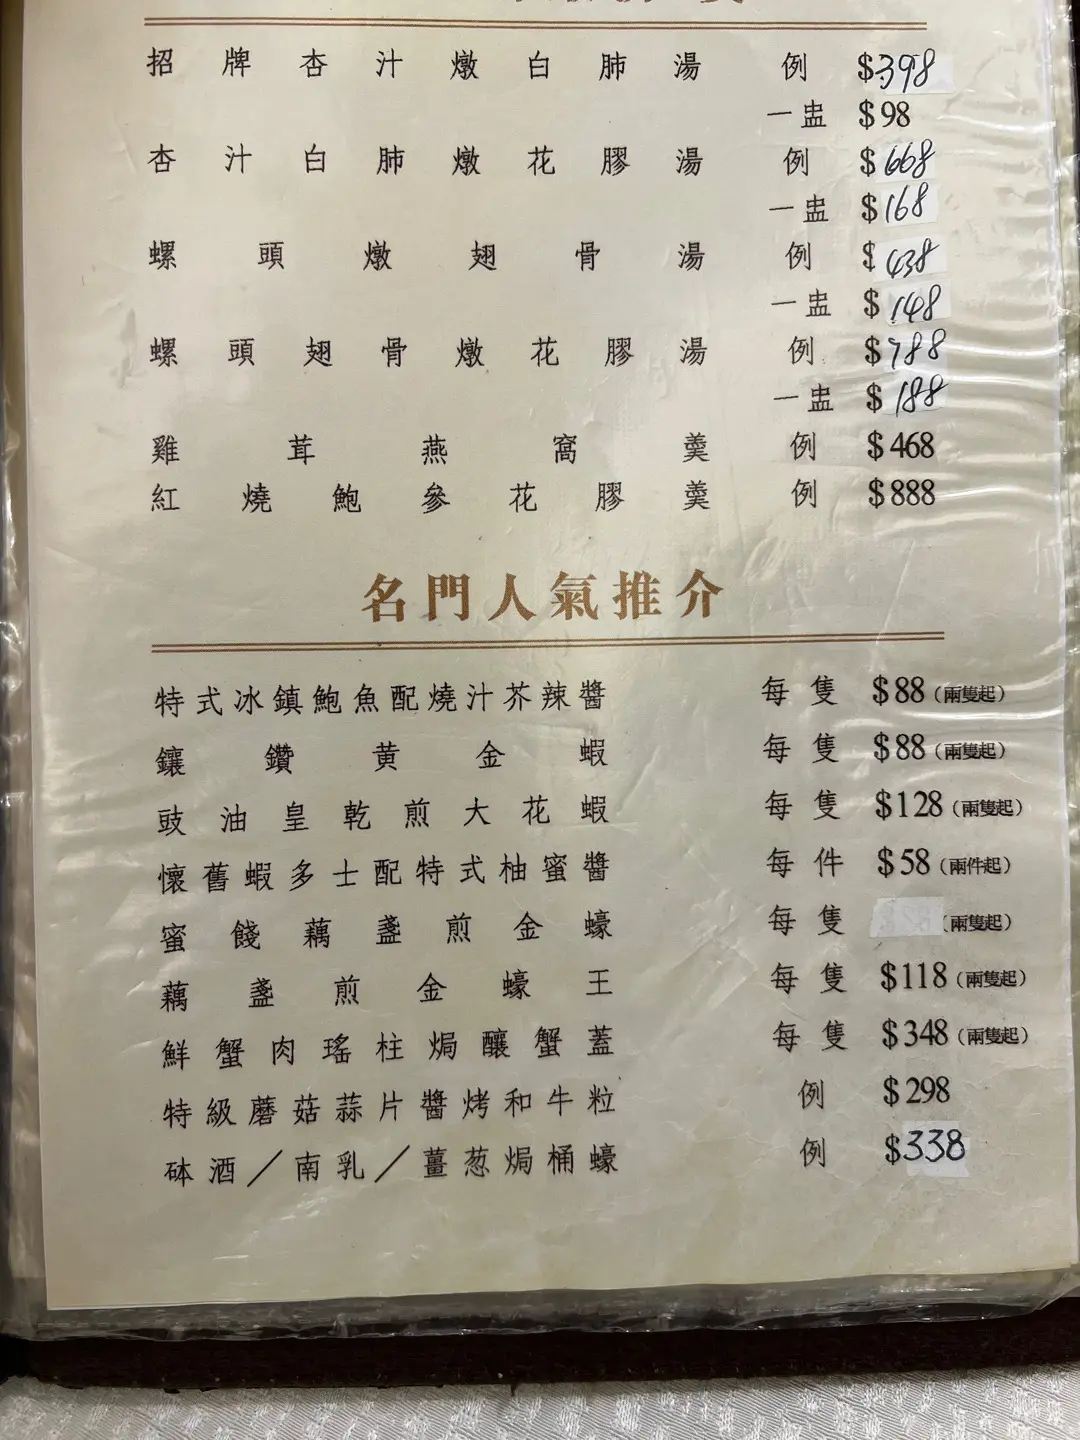 招牌杏汁燉白肺湯 例 $398
一盅 $98
杏汁白肺燉花膠湯 例 $668
一盅 $168
螺頭燉翅骨湯 例 $438
一盅 $148
螺頭翅骨燉花膠湯 例 $788
一盅 $188
雞茸燕窩羹 例 $468
紅燒鮑參花膠羹 例 $888
名門人氣推介
特式冰鎮鮑魚配燒汁芥辣醬 每隻 $88(兩隻起)
鑲鑽黄金蝦 每隻 $88(兩隻起)
豉油皇乾煎大花蝦 每隻 $128(兩隻起)
懷舊蝦多士配特式柚蜜醬 每件 $58(兩件起)
蜜餞藕盞煎金蠔 每隻 (兩隻起)
藕盞煎金蠔王 每隻 $118(兩隻起)
鮮蟹肉瑤柱焗釀蟹蓋 每隻 $348(兩隻起)
特級蘑菇蒜片醬烤和牛粒 例 $298
砵酒/南乳/薑葱焗桶蠔 例 $338